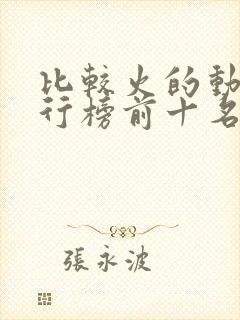 比較火的動
行榜前十名
張永波